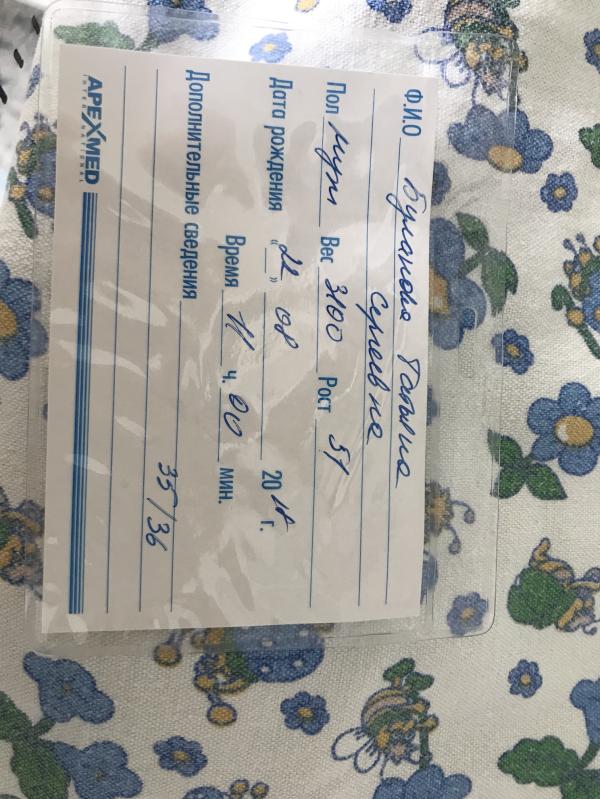 Ф.И.О Буланова Татьяна
Сергеевна
Пол муж Вес 3100 Рост 51
Дата рождения "22" 08 20 г.
Время 11 ч. 00 мин.
Дополнительные сведения
35/36
APEXMED
INTERNATIONAL